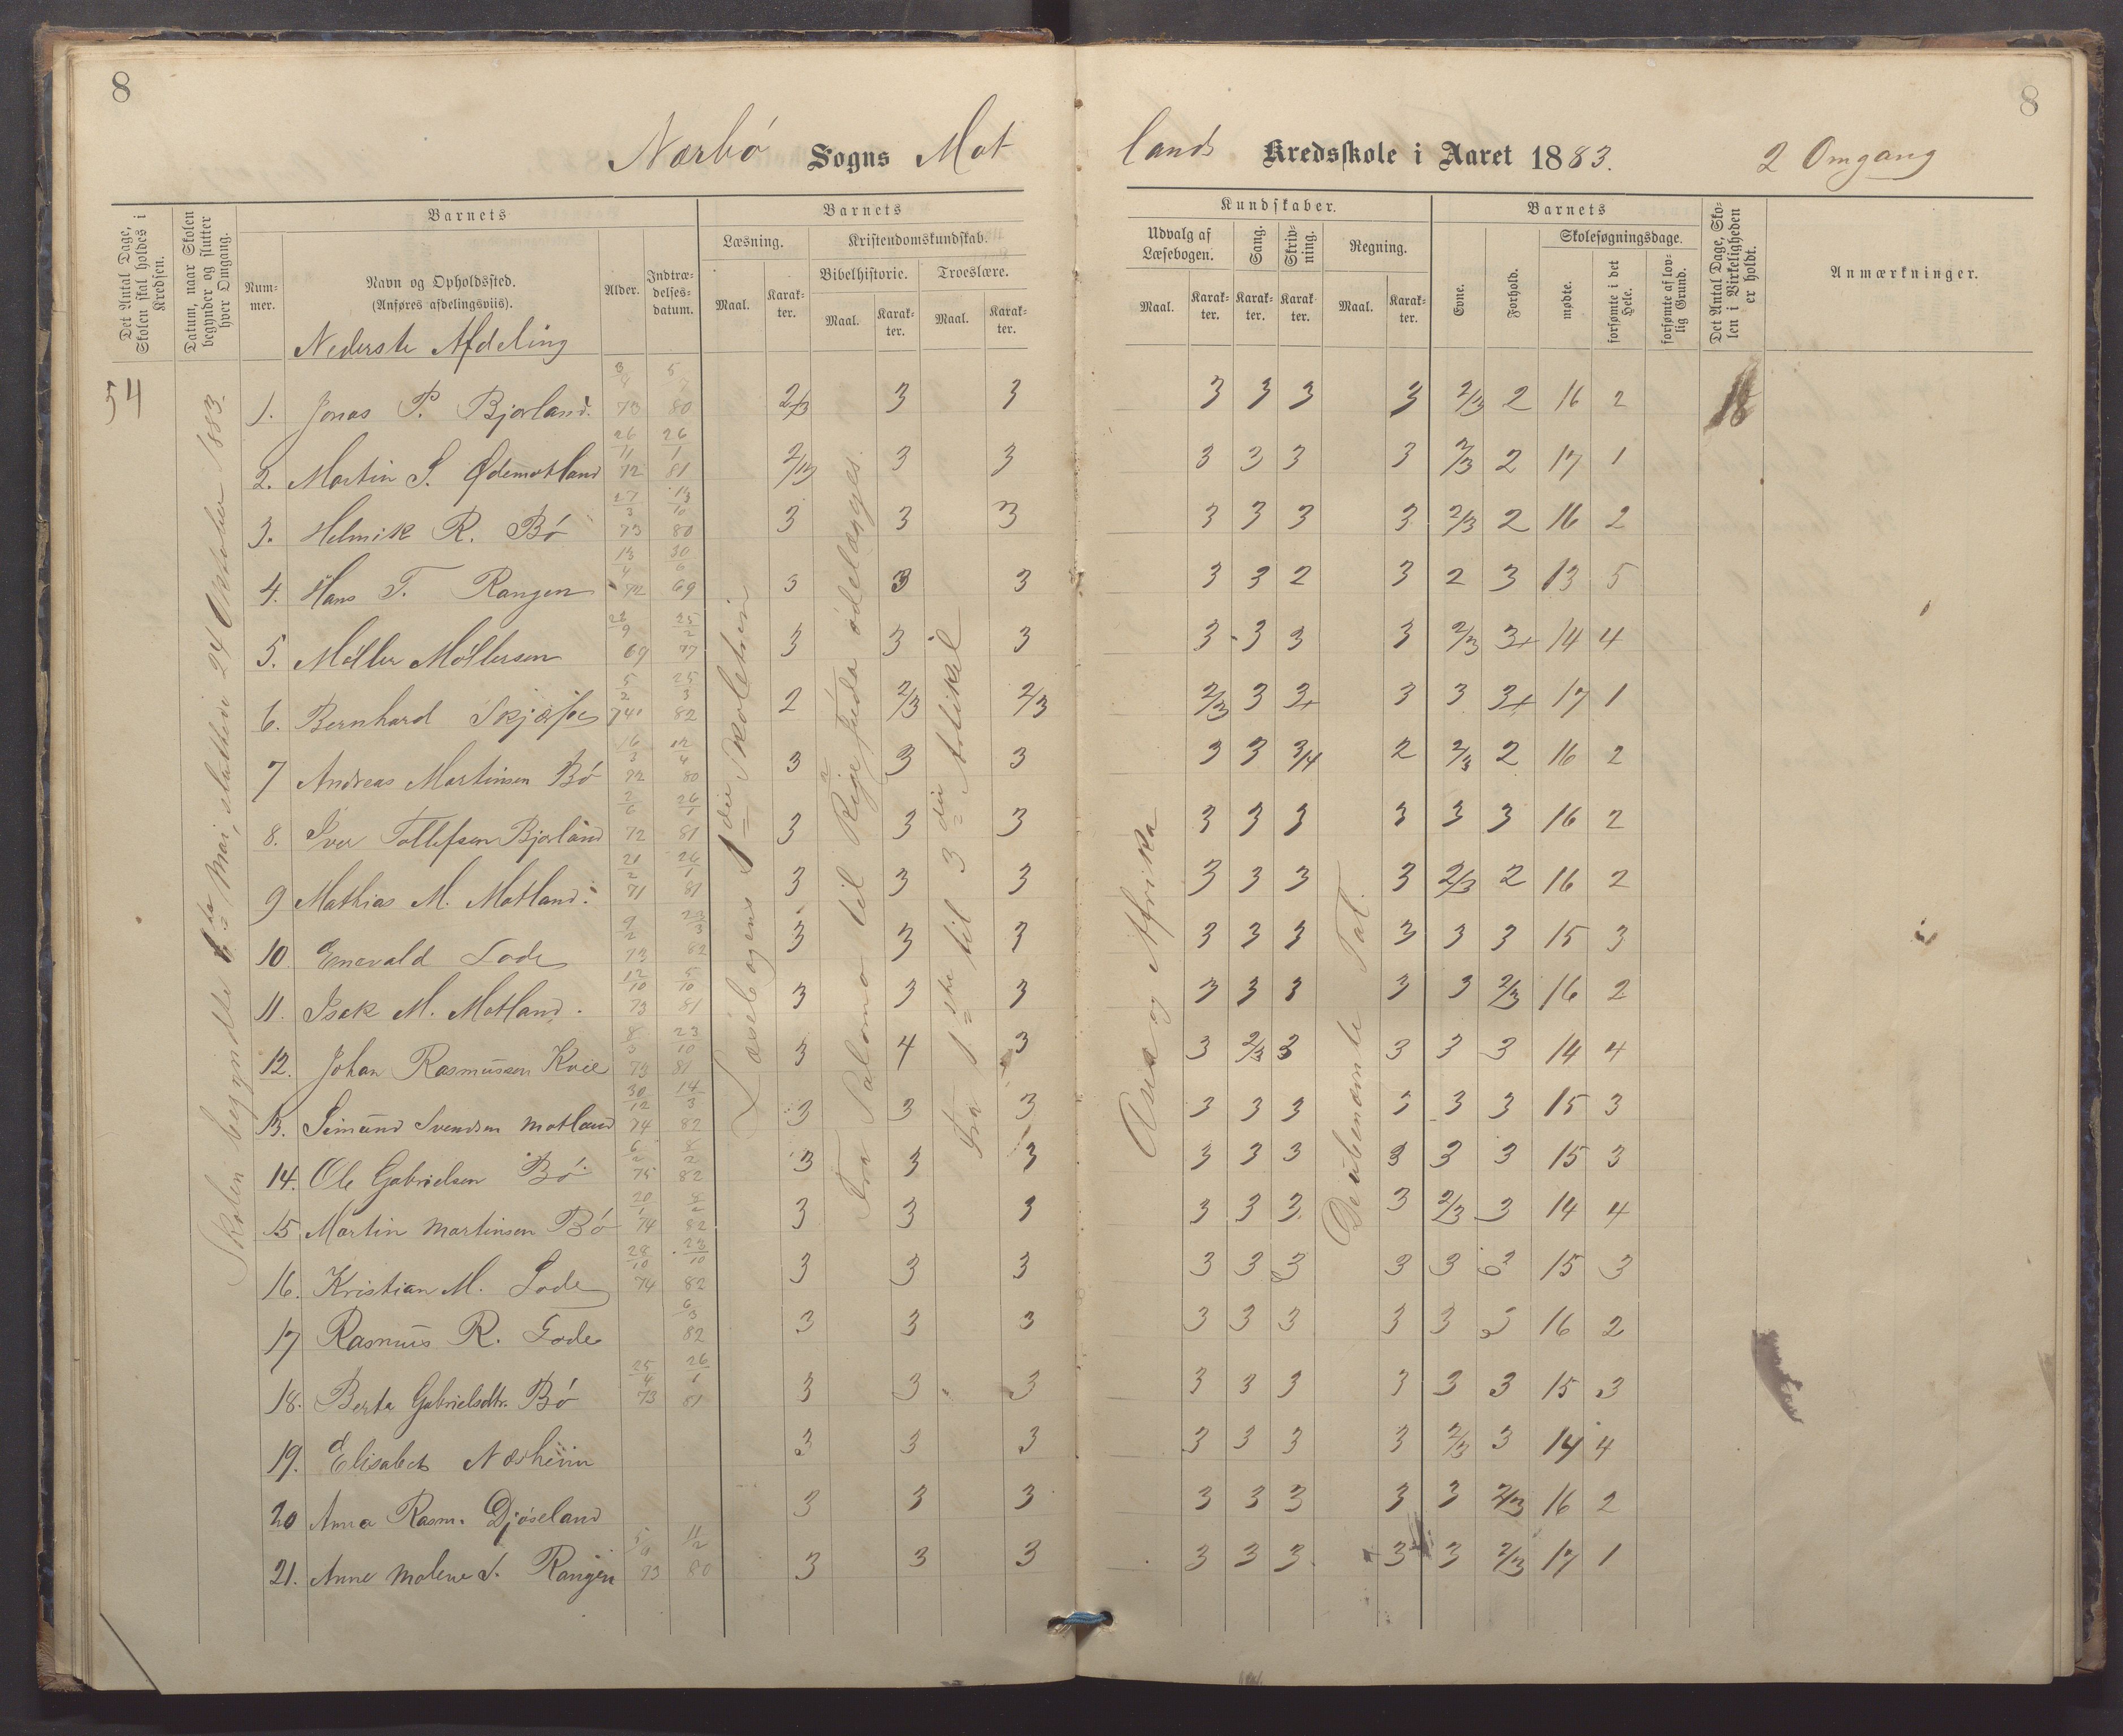 8
8
Nærbø Sogns Motlands Kredsskole i Aaret 1883. 2 Omgang
Det Antal Dage, Skolen skal holdes i Kredsen.
Datum, naar Skolen begynder og slutter hver Omgang.
Barnets
Nummer.
Navn og Opholdssted.
(Anføres afdelingsviis).
Alder.
Indtrædelsesdatum.
Barnets
Læsning.
Maal.
Karakter.
Kristendomskundskab.
Bibelhistorie.
Maal.
Karakter.
Troeslære.
Maal.
Karakter.
Kundskaber.
Udvalg af Læsebogen.
Maal.
Karakter.
Sang.
Karakter.
Skrivning.
Karakter.
Regning.
Maal.
Karakter.
Barnets
Evne.
Forhold.
Skolesøgningsdage.
mødte.
forsømte i det Hele.
forsømte af lovlig Grund.
Det Antal Dage, Skolen i Virkeligheden er holdt.
Anmærkninger.
Nederste Afdeling
54
Skolen begyndte Mai, sluttede 24 Oktober 1883.
Læsebogens 1 die Skoletrin
Fra Salomo til Riget Juda ødelægges.
Fra 1ste til 3die Artikel
Asia og Afrika
De ubenævnte Tal.
18
1. Jonas P. Bjorland. 3/8 73 5/7 80 2/3 3 3 3 3 3 3 2/3 2 16 2
2. Martin S. Ødemotland 26/11 72 26/1 81 2/3 3 3 3 3 3 3 2/3 2 17 1
3. Helmik R. Bø 27/3 73 13/10 80 3 3 3 3 3 3 3 2/3 2 16 2
4. Hans T. Rangen 13/4 72 30/6 69 3 3 3 3 3 2 3 2 3 13 5
5. Møller Møllersen 22/9 69 25/2 77 3 3 3 3 3 3 3 2/3 3+ 14 4
6. Bernhard 5/2 74 25/3 82 2 2/3 2/3 2/3 3 3+ 3 3 3+ 17 1
7 Andreas Martinsen Bø 16/3 72 12/4 80 3 3 3 3 3 3/4 2 2/3 2 16 2
8. Iver Tollefsen Bjorland 2/6 72 26/1 81 3 3 3 3 3 3 3 3 3 16 2
9 Mathias M. Motland. 21/2 71 26/1 81 3 3 3 3 3 3 3 2/3 2 16 2
10 Enevald Lode 9/2 73 23/3 82 3 3 3 3 3 3 3 3 3 15 3
11. Isak M. Motland. 12/10 73 5/10 81 3 3 3 3 3 3 3 3 2/3 16 2
12. Johan Rasmussen Kvie 8/3 73 23/10 81 3 4 3 3 2/3 3 3 3 3 14 4
13. Simund Svendsen Motland 30/12 74 14/3 82 3 3 3 3 3 3 3 3 3 15 3
14. Ole Gabrielsen Bø 6/2 75 8/2 82 3 3 3 3 3 3 3 3 3 15 3
15 Martin Martinsen Bø 20/1 74 8/2 82 3 3 3 3 3 3 3 2/3 3 14 4
16. Kristian M. Lode 28/10 74 23/10 82 3 3 3 3 3 3 3 3 3 15 3
17 Rasmus R. Lode 6/3 82 3 3 3 3 3 3 3 3 3 16 2
18. Berta Gabrielsdtr. Bø 25/4 73 26/1 81 3 3 3 3 3 3 3 3 3 15 3
19. Elisabet Næsheim 3 3 3 3 3 3 3 2/3 3 14 4
20 Anna Rasm. Djøseland 3 3 3 3 3 3 3 3 2/3 16 2
21. Anne Malene T. Rangen 73 11/2 80 3 3 3 3 3 3 3 3 2/3 17 1